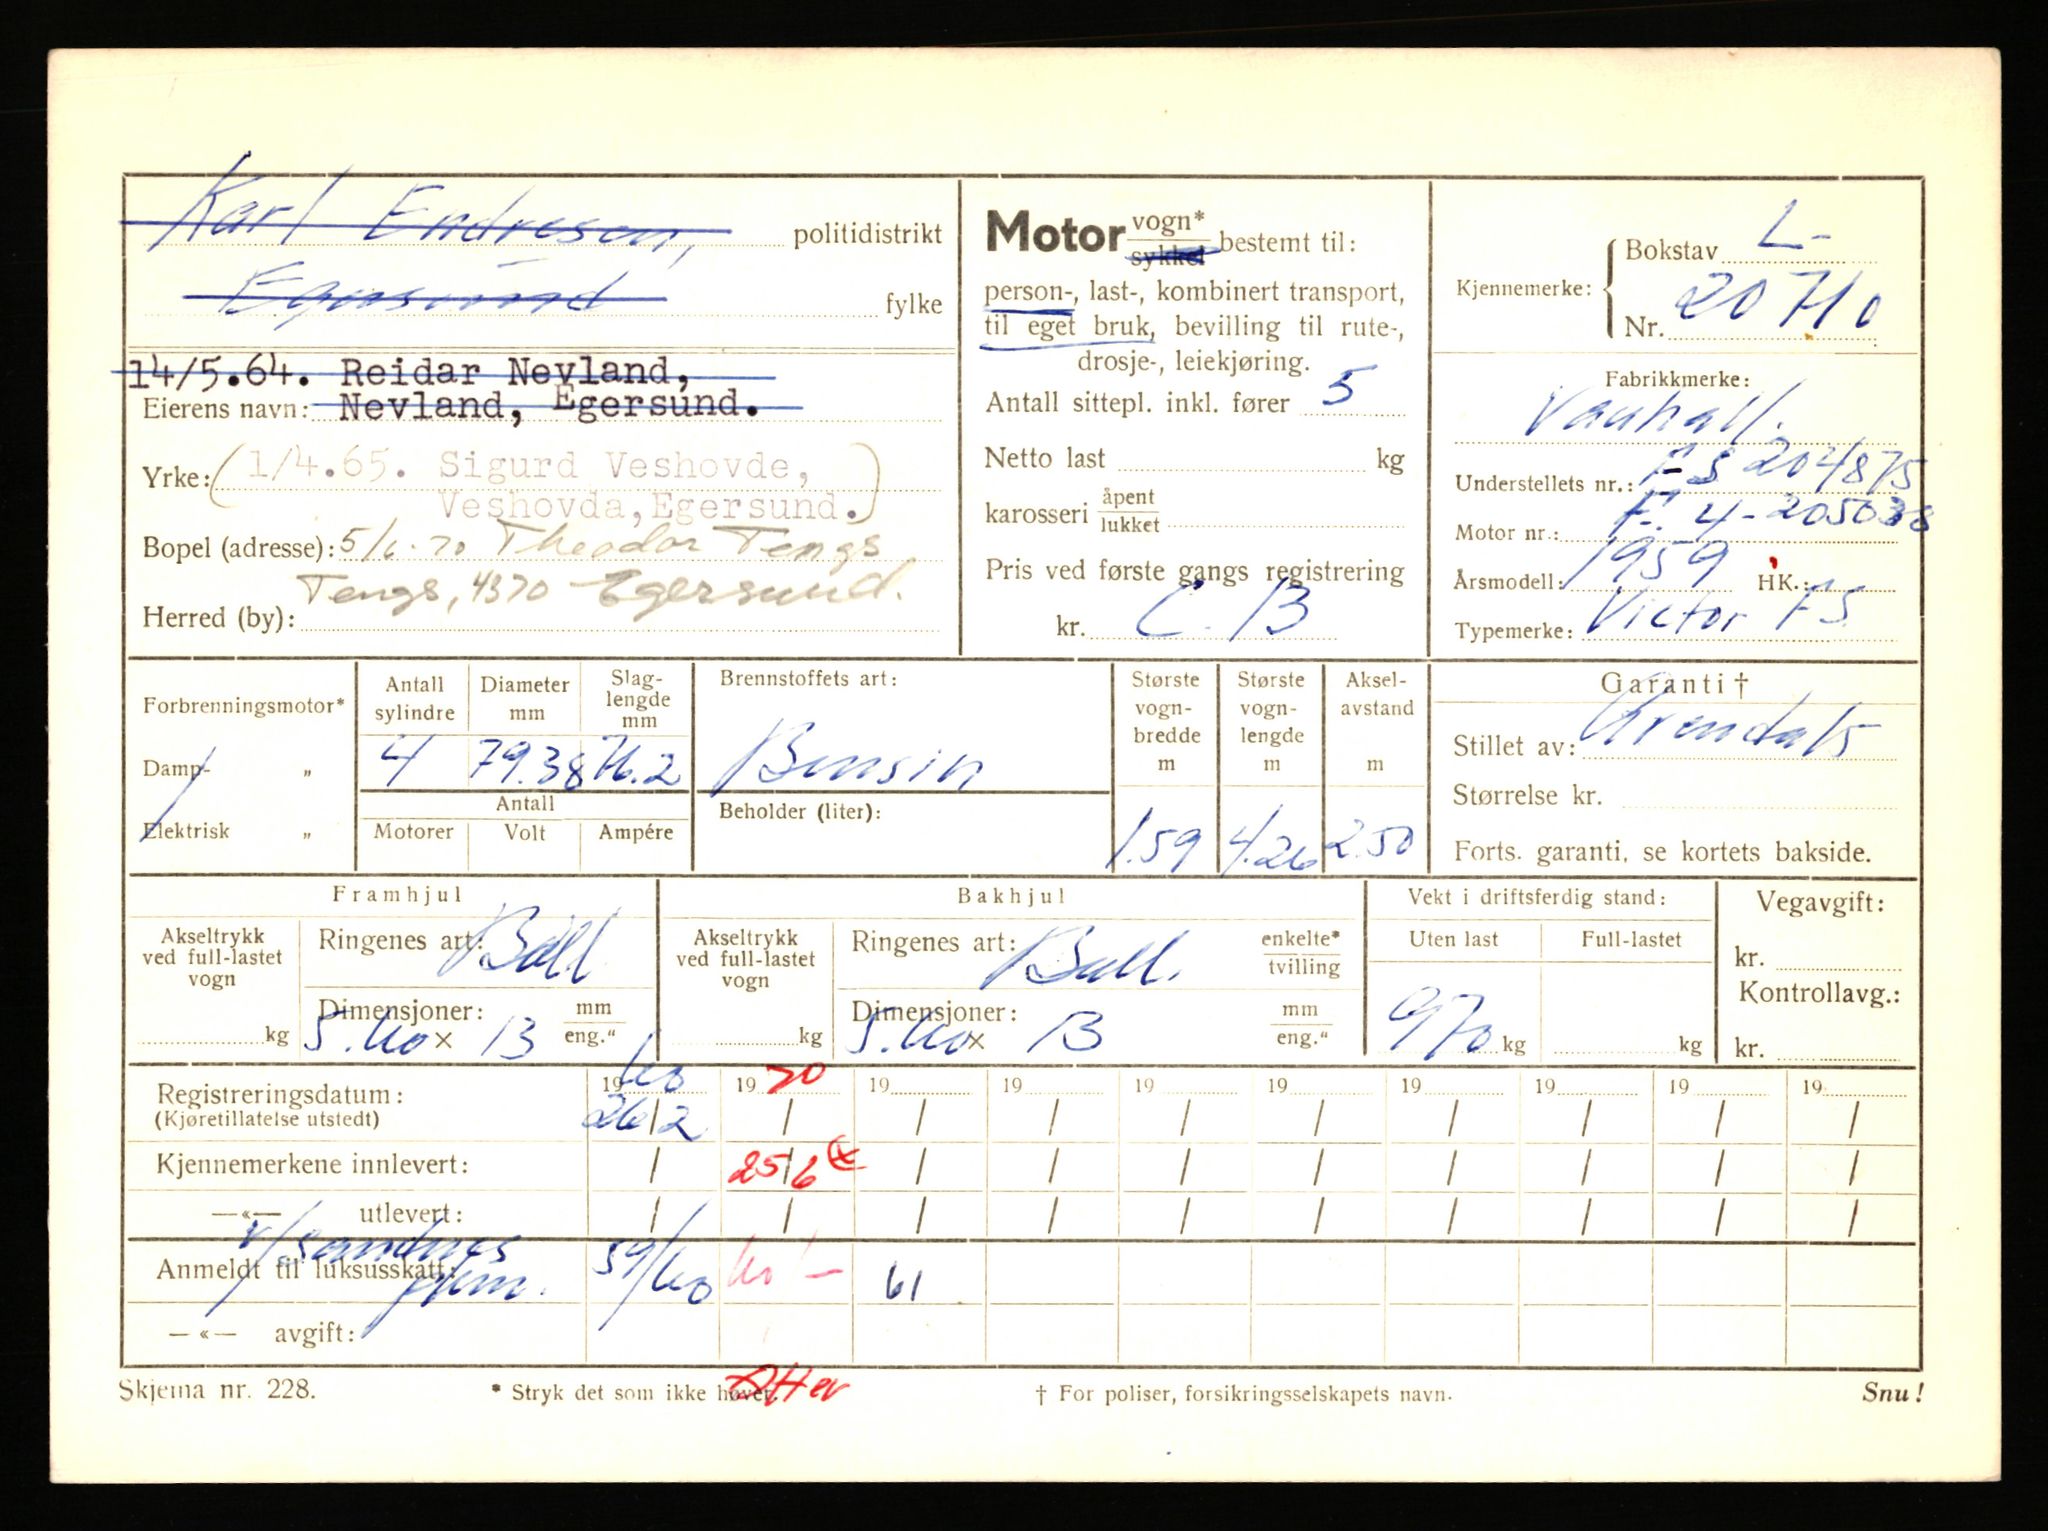 Karl Endresen, politidistrikt
Egersund fylke
14/5.64. Reidar Nevland,
Eierens navn: Nevland, Egersund.
Yrke: (1/4.65. Sigurd Veshovde,
Veshovda, Egersund.)
Bopel (adresse): 5/6-70 Theodor Tengs
Tengs, 4370 Egersund.
Herred (by):
Motor vogn* / sykkel bestemt til:
person-, last-, kombinert transport,
til eget bruk, bevilling til rute-,
drosje-, leiekjøring.
Antall sittepl. inkl. fører 5
Netto last kg
karosseri åpent / lukket
Pris ved første gangs registrering
kr. C.B
Kjennemerke: Bokstav L-
Nr. 20710
Fabrikkmerke:
Vauhall.
Understellets nr.: FS 204875
Motor nr.: F. 4-205038
Årsmodell: 1959 HK.:
Typemerke: Victor FS
Forbrenningsmotor*
Damp- „
Elektrisk „
Antall sylindre
4
Diameter mm
79.38
Slag-lengde mm
76.2
Antall
Motorer Volt Ampére
Brennstoffets art:
Bensin
Beholder (liter):
Største vogn-bredde m
1.59
Største vogn-lengde m
4.26
Aksel-avstand m
2.50
Garanti †
Stillet av: Arendals
Størrelse kr.
Forts. garanti, se kortets bakside.
Framhjul
Akseltrykk ved full-lastet vogn
kg
Ringenes art: Ball.
Dimensjoner: mm / eng."
5.60 x 13
Bakhjul
Akseltrykk ved full-lastet vogn
kg
Ringenes art: Ball. enkelte* / tvilling
Dimensjoner: mm / eng."
5.60 x 13
Vekt i driftsferdig stand:
Uten last Full-lastet
970 kg kg
Vegavgift:
kr.
Kontrollavg.:
kr.
1960 1970 19 19 19 19 19 19 19 19
Registreringsdatum: 26/2 / / / / / / / / /
(Kjøretillatelse utstedt)
Kjennemerkene innlevert: / 25/6 / / / / / / / /
—«— utlevert: / / / / / / / / / /
v/Sandnes
Anmeldt til luksusskatt: 59/60 60 – 61
—«— avgift:
Skjema nr. 228. * Stryk det som ikke høver. † For poliser, forsikringsselskapets navn. Snu!